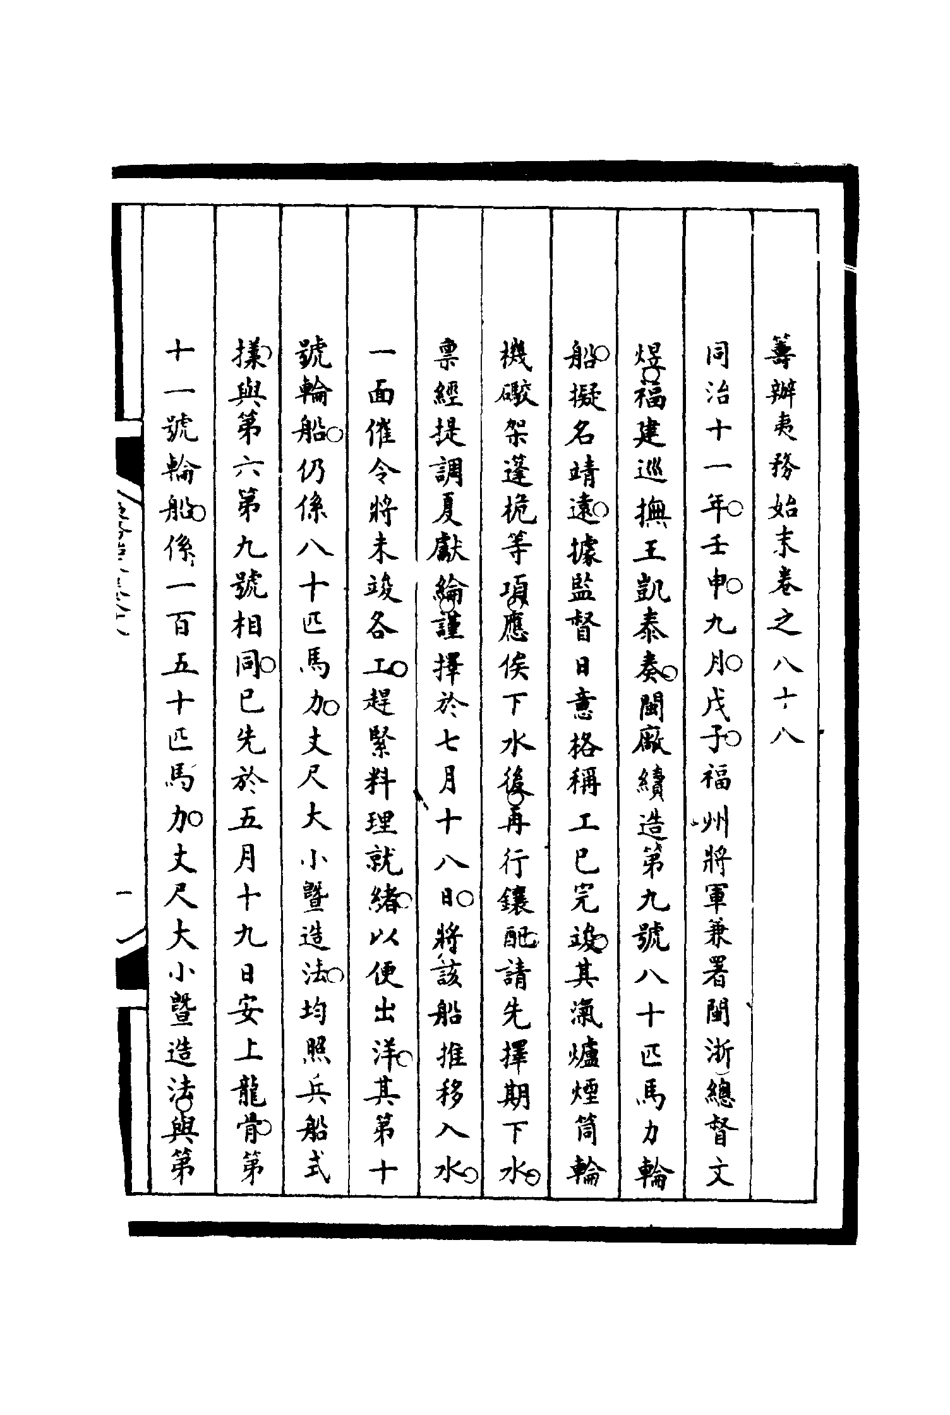 籌辦夷務始末卷之八十八
同治十一年○壬申○九月○戊子○福州將軍兼署閩浙總督文
煜○福建巡撫王凱泰奏○閩廠續造第九號八十匹馬力輪
船○擬名靖遠○據監督日意格稱工已完竣○其滊爐煙筒輪
機礮架蓬桅等項○應俟下水後○再行鑲配○請先擇期下水○
稟經提調夏獻綸○謹擇於七月十八日○將該船推移入水○
一面催令將未竣各工○趕緊料理就緒○以便出洋○其第十
號輪船○仍係八十匹馬力○丈尺大小曁造法○均照兵船式
樣○與第六第九號相同○已先於五月十九日安上龍骨○第
十一號輪船○係一百五十匹馬力○丈尺大小曁造法○與第
一